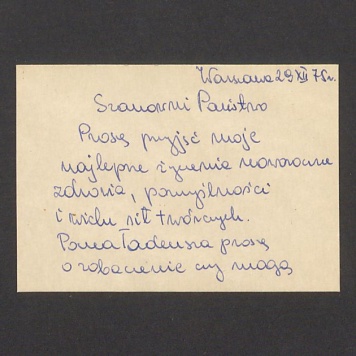 Warszawa 29 XII 75r.
Szanowni Państwo
Proszę przyjść moje
najlepsze życzenia noworoczne
zdrowia, pomyślności
i wielu sił twórczych.
Pana Tadeusza proszę
o zobaczenie czy mogą